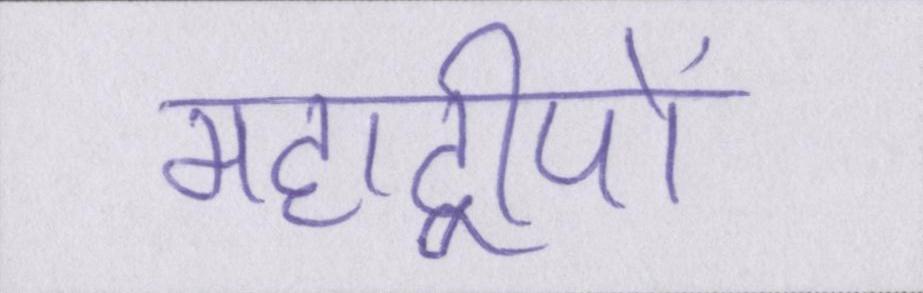 महाद्वीपों